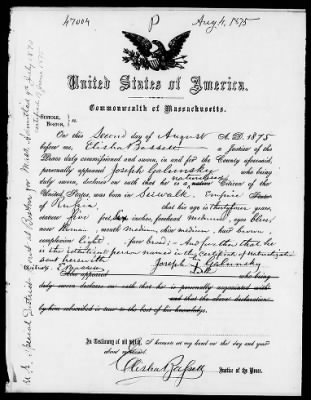 47004
P
Aug 4, 1875
United States of America.
Commonwealth of Massachusetts.
SUFFOLK,
BOSTON, } ss.
On this Second day of August A.D. 1875
before me, Elisha Bassett a Justice of the
Peace duly commissioned and sworn, in and for the County aforesaid,
personally appeared Joseph Golinsky who being
naturalized
duly sworn, declares on oath that he is a native Citizen of the
United States, was born in Suwalk, Empire State
of Russia that his age is thirty four years,
stature five feet six inches, forehead medium, eyes blue,
nose Roman, mouth medium, chin medium, hair brown
complexion light, face broad; And further that he
is the identical person named in the certificate of naturalization
sent herewith Joseph Golinsky
Also appeared who being
duly sworn declares on oath that he is personally acquainted with
and that the above declaration
by him subscribed is true to the best of his knowledge.
In Testimony of all which, I hereunto set my hand on the day and year
above written.
Elisha Bassett Justice of the Peace.